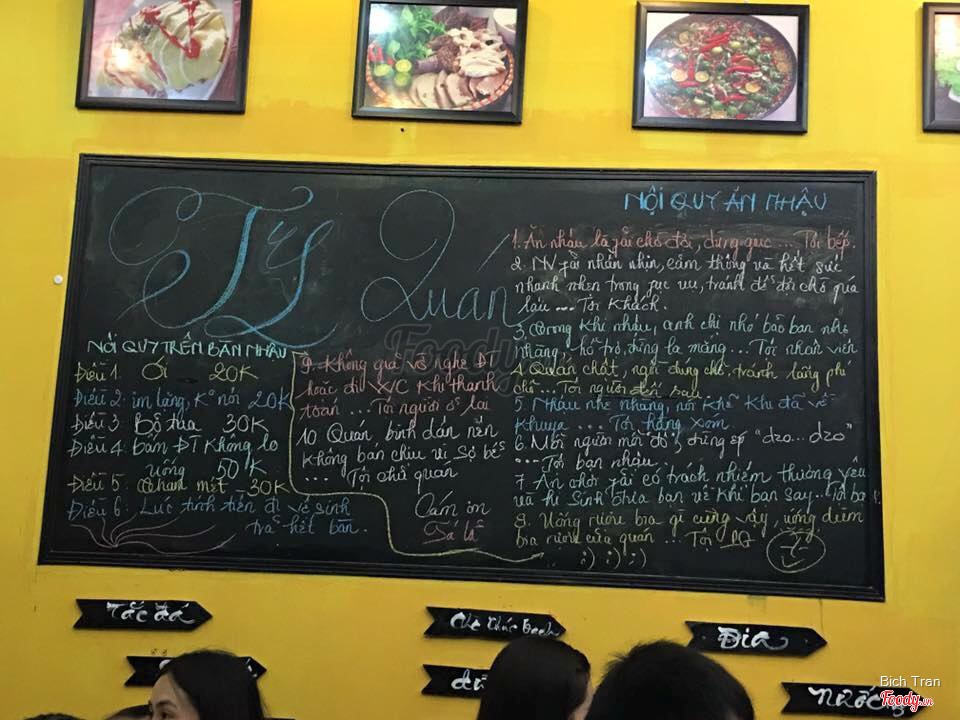 Tý Quán
NỘI QUY ĂN NHẬU
1. Ăn nhậu là phải chờ đồ, đừng giục ... Tội bếp.
2. NV phải nhẫn nhịn, cảm thông và hết sức
nhanh nhẹn trong phục vụ, tránh để đợi chờ quá
lâu ... Tội Khách.
3. Trong khi nhậu, anh chị nhớ bảo ban nhẹ
nhàng - hỗ trợ, đừng la mắng ... Tội nhân viên
4. Quán chật, ngồi đúng chỗ, tránh lãng phí
chỗ ... Tội người đến sau
5. Nhậu nhẹ nhàng, nói khẽ khi đã về
khuya ... Tội hàng xóm
6. Mỗi người mỗi độ, đừng ép "dzo...dzo"
... Tội bạn nhậu
7. Ăn chơi phải có trách nhiệm thương yêu
và hi sinh đưa bạn về khi bạn say...
8. Uống rượu bia gì cũng vậy, uống
bia rượu của quán ... Tội
:) ;) ;)
NỘI QUY TRÊN BÀN NHẬU
Điều 1. Ói 20K
Điều 2: im lặng, K° nói 20K
Điều 3 Bỏ trốn 30K
Điều 4: bấm ĐT không lo
uống 50K
Điều 5: Chạm mít 30K
Điều 6: Lúc tính tiền đi vệ sinh
trả hết bàn.
9. Không quá vờ nghe ĐT
hoặc đi W/C Khi thanh
toán ... Tội người ở lại
10 Quán, bình dân nên
không bán chịu vì sợ bể
... Tội chủ quán
Cám ơn
Tá lả
Tắc đá
Bia
Bich Tran
Foody.vn